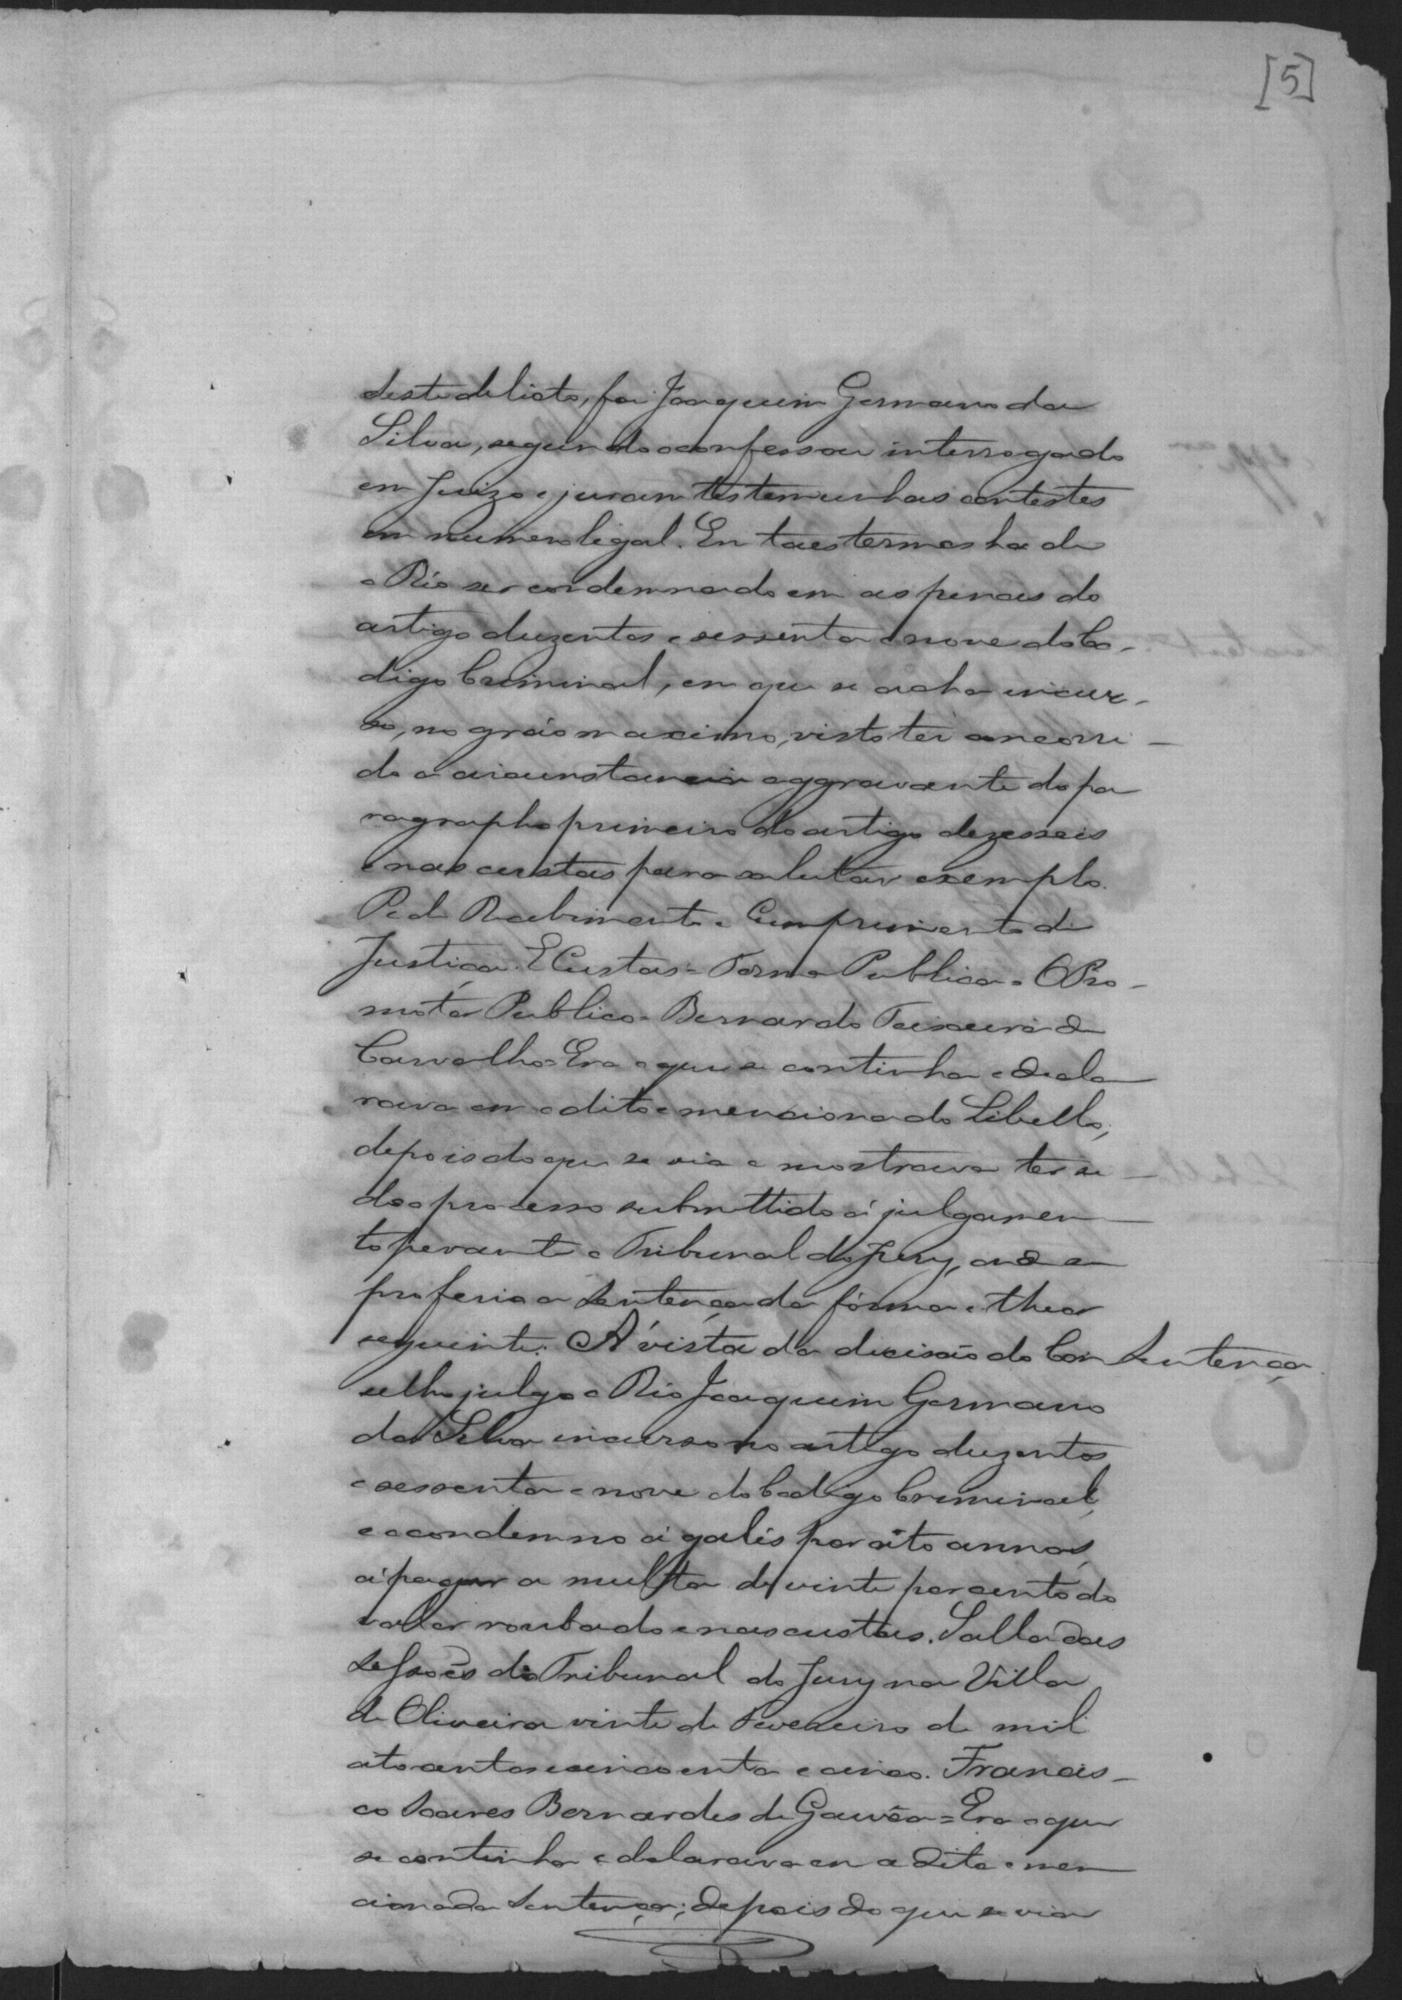 [5]
deste delicto, foi Joaquim Germano da
Silva, segundo o confessou interrogado
em Juizo e juram testemunhas contestes
em numero legal. Em taes termos ha de
o Réo ser condemnado em as penas do
artigo duzentos e sessenta e nove do Co-
digo Criminal, em que se acha incur-
so, no gráo maximo, visto ter concorri-
do a circunstancia aggravante do pa
ragrapho primeiro do artigo dezesseis
e nas custas para salutar exemplo.
Pede Recebimento e Cumprimento de
Justiça. E Custas = Forma Publica = O Pro-
motor Publico = Bernardo Teixeira de
Carvalho = Era o que se continha e decla
rava em o dito e mencionado Libello,
depois do que se via e mostrava ter si-
do o processo submettido á julgamen-
to perante o Tribunal do Jury, onde se
proferio a Sentença da fórma e theor
seguinte. Á vista da decisão do Con Sentença
selho julgo o Réo Joaquim Germano
da Silva incurso no artigo duzentos
e sessenta e nove do Codigo Criminal,
e o condemno á galés por oito annos,
á pagar a multa de vinte por cento do
valor roubado e nas custas. Salla das
Sessoẽs do Tribunal do Jury na Villa
de Oliveira vinte de Fevereiro de mil
oito centos e cincoenta e cinco. Francis-
co Soares Bernardes de Gouvêa = Era o que
se continha e declarava em a dita e men
cionada Sentença; depois do que se via